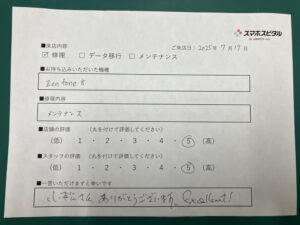 スマホスピタル
■来店内容
ご来店日：2025年7月17日
☑ 修理 □ データ移行 □ メンテナンス
■お持ち込みいただいた機種
Zenfone 8
■修理内容
メンテナンス
■店舗の評価 （丸を付けて評価してください）
（低） 1 ・ 2 ・ 3 ・ 4 ・ 5 （高）
■スタッフの評価 （丸を付けて評価してください）
（低） 1 ・ 2 ・ 3 ・ 4 ・ 5 （高）
■一言いただけますと幸いです
さん ありがとうございます。 Excellent!